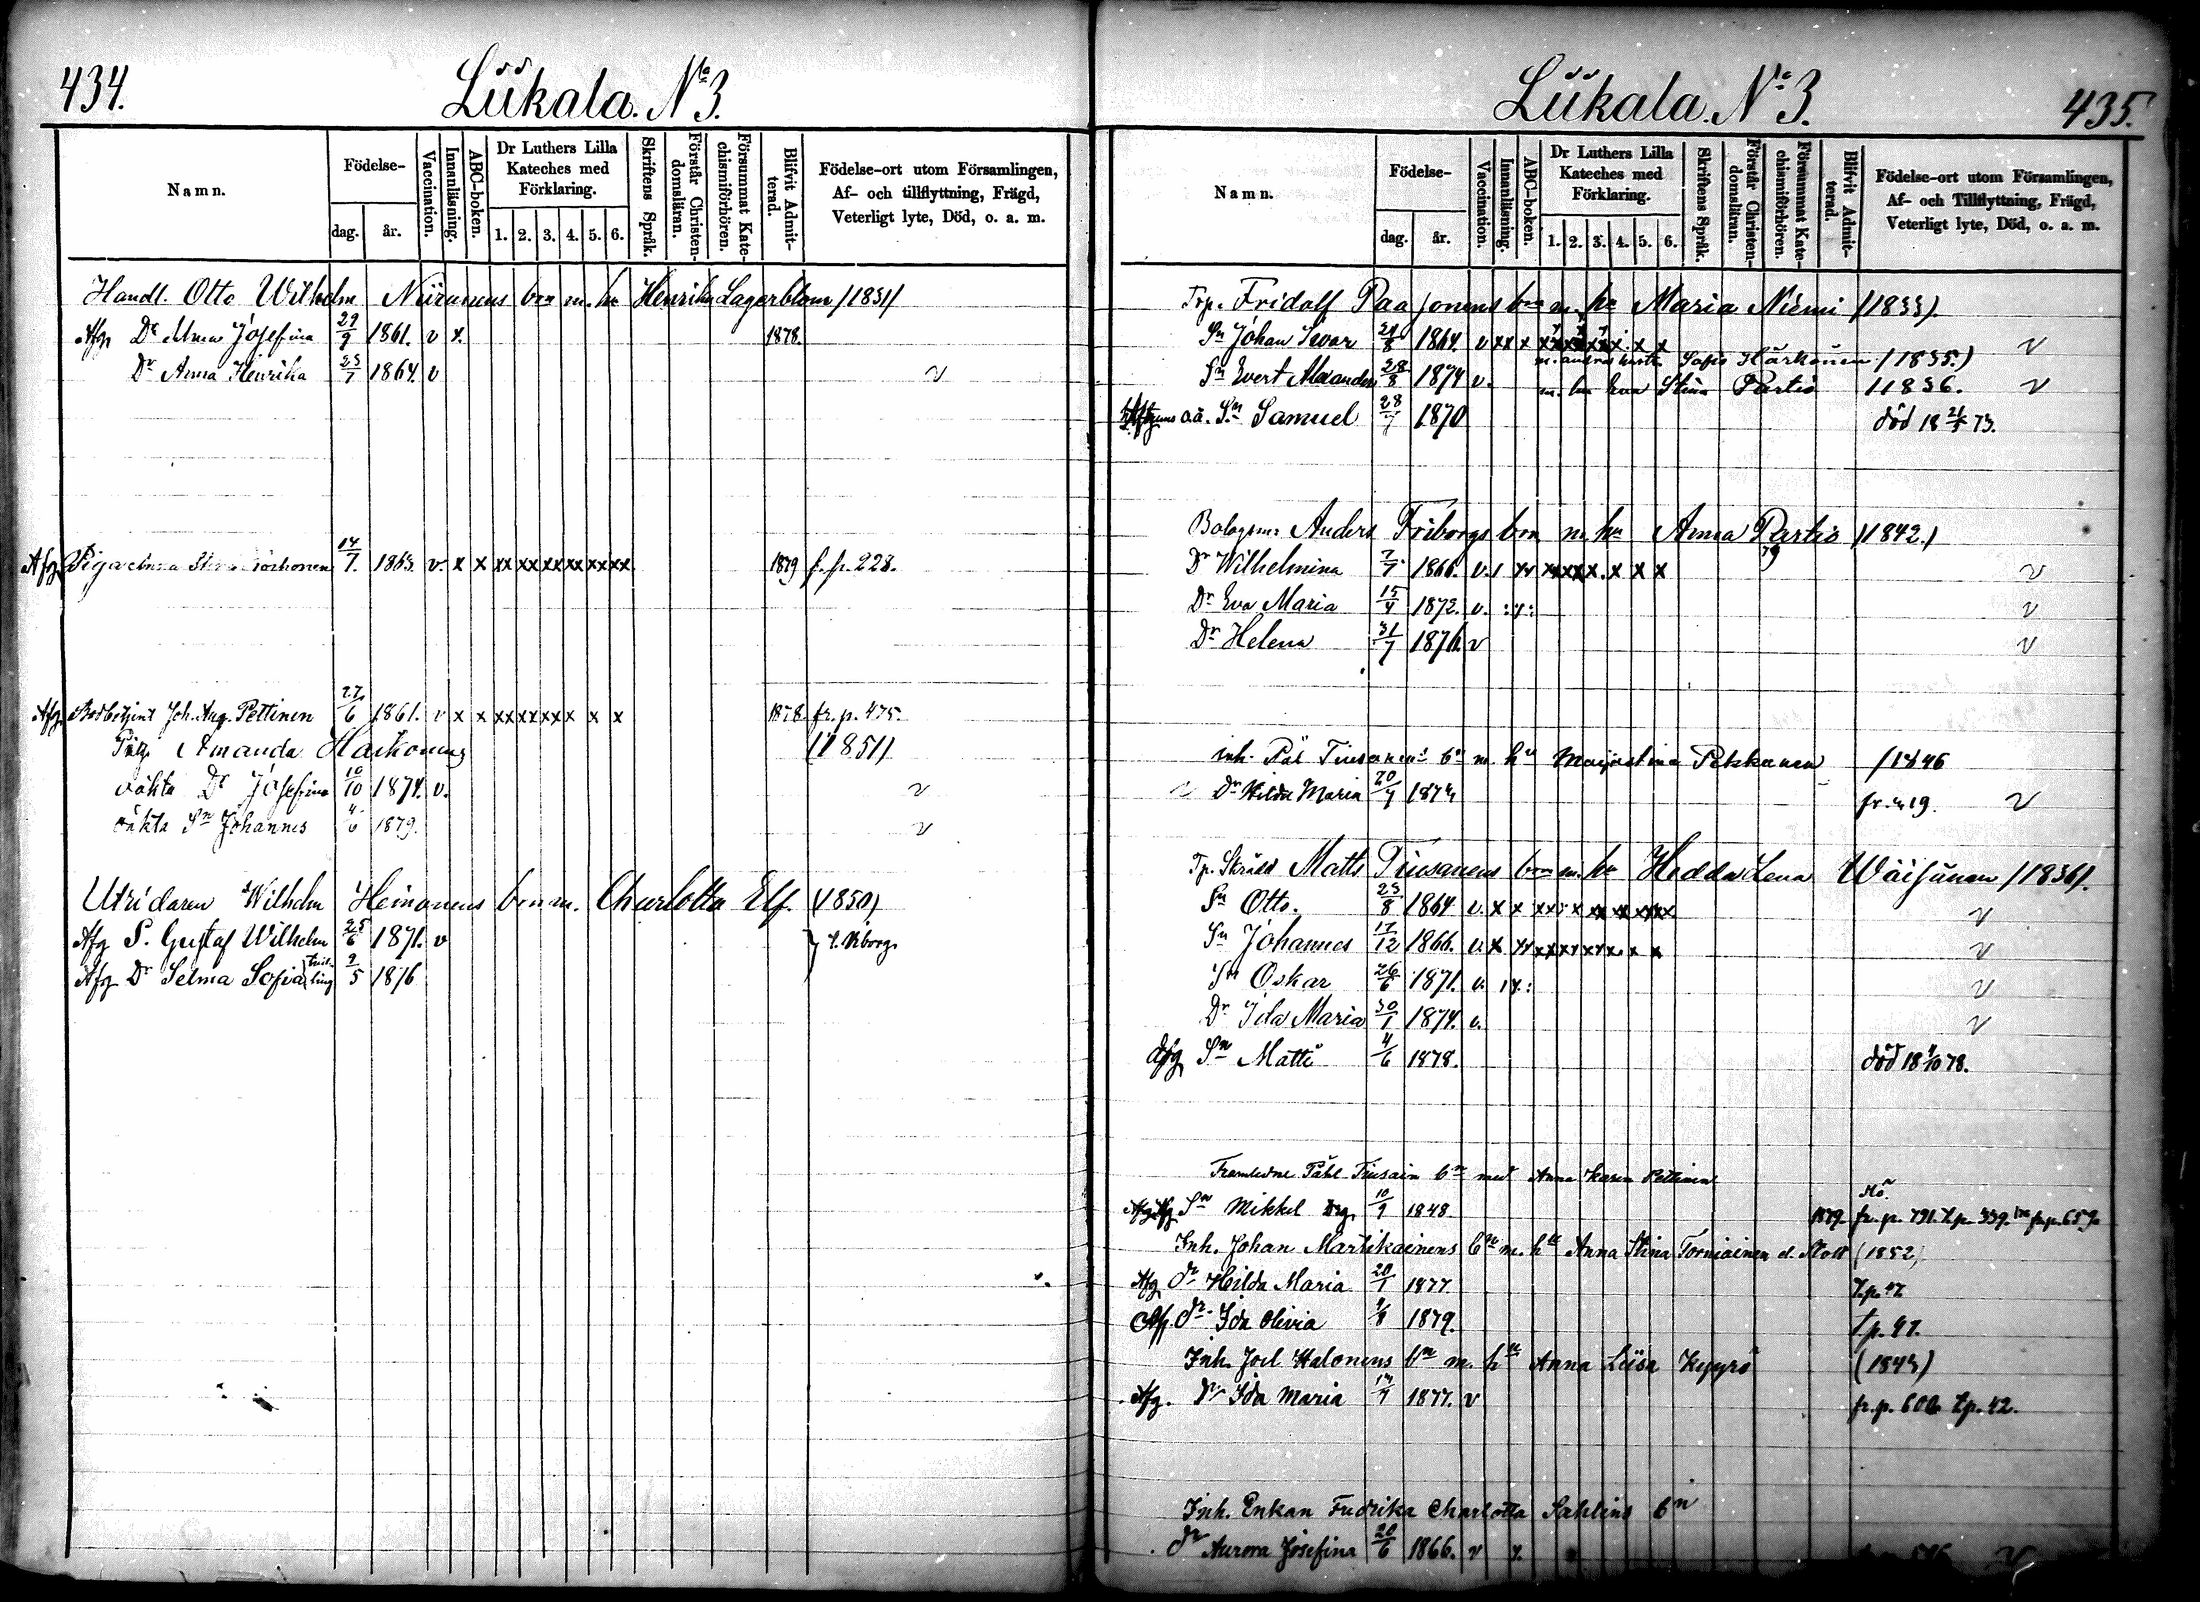 434.
Lükala. No 3.
Namn.
Födelse-
dag.
år.
Vaccination.
Innanläsning.
ABC-boken.
Dr Luthers Lilla Kateches med Förklaring.
1. 2. 3. 4. 5. 6.
Skriftens Språk.
Förstår Christendomsläran.
Försummat Katechismiförhören.
Blifvit Admitterad.
Födelse-ort utom Församlingen, Af- och tillflyttning, Frägd, Veterligt lyte, Död, o. a. m.
Handl. Otto Wilhelm Nürunens brn m. hu Henrika Lagerblom /1831/
Afg Dr Alma Josefina 29/9 1861. v x. 1878.
Dr Anna Henrika 25/7 1864. v v
Afg Piga Stina 14/7. 1863. v x x xx xx xx xx xx xx 1879 f. p. 228.
Afg Bodbetjent Joh. Aug. Pettinen 27/6 1861. v x x xx xx xx x x x 1878. fr. p. 475.
Amanda Harkonens (1851)
oäkta Dr Josefina 10/10 1874. v. v
oäkta Sn Johannes 4/6 1879. v
Utridaren Wilhelm Heinonens brn m. Charlotta Elf. (1850)
Afg S. Gustaf Wilhelm 25/6 1871. v t. Viborg
Afg Dr Selma Sofia tvilling 9/5 1876
Lükala. No 3.
435.
Namn.
Födelse-
dag.
år.
Vaccination.
Innanläsning.
ABC-boken.
Dr Luthers Lilla Kateches med Förklaring.
1. 2. 3. 4. 5. 6.
Skriftens Språk.
Förstår Christendomsläran.
Försummat Katechismiförhören.
Blifvit Admitterad.
Födelse-ort utom Församlingen, Af- och Tillflyttning, Frägd, Veterligt lyte, Död, o. a. m.
Trp. Fridolf Paajonens brn m. hu Maria Niemi (1833).
Sn Johan Ivar 24/8 1864. v xx x v
m. andra hust. Sofia Härkönen (1835.)
Sn Evert Alexander 28/8 1874 v. m. hu Eva Stina Partio 11836. v
Sn Samuel 28/7 1870 död 18 21/5 73.
Anders Friborgs brn m. hu Anna Partio (1842.)
Dr Wilhelmina 7/7 1866. v. v
Dr Eva Maria 15/4 1872. v. v
Dr Helena 31/7 1876. v v
inh. Pål Tiusanens bn m. hu Maja stina Pekkanen /1846
Dr Hilda Maria 20/7 fr. 419. v
Tp. Skrädd Matts Tiusanens brn m. hu Hedda Lena Wäisänen /1836/.
Sn Otto. 23/8 1864 v. x x v
Sn Johannes 17/12 1866. v. x v
Sn Oskar 26/6 1871. v. v
Dr Ida Maria 30/1 1874. v. v
afg Sn Matti 4/6 1878. död 18 4/10 78.
Framledne Påhl Tiusain bn med Anna Karin Pettinen
Afg Sn Mikkel Drg. 10/9 1848 1879. fr. p. 791. t. p. 339. fr. p. 659.
Inh. Johan Martikainens bn m. hu Anna Stina Torniainen (1852)
Afg dr Hilda Maria 20/1 1877. t. p. 47
Af. dr Ida Olivia 4/8 1879. t. p. 47.
Inh. Joel Halonens bn m. hu Anna Liisa Kyyrö (1843)
Afg. dr Ida Maria 14/7 1877. v fr. p. 606 t. p. 42.
Inh. Enkan Fredrika Charlotta Sahlins bn
dr Aurora Josefina 20/6 1866. v x. v